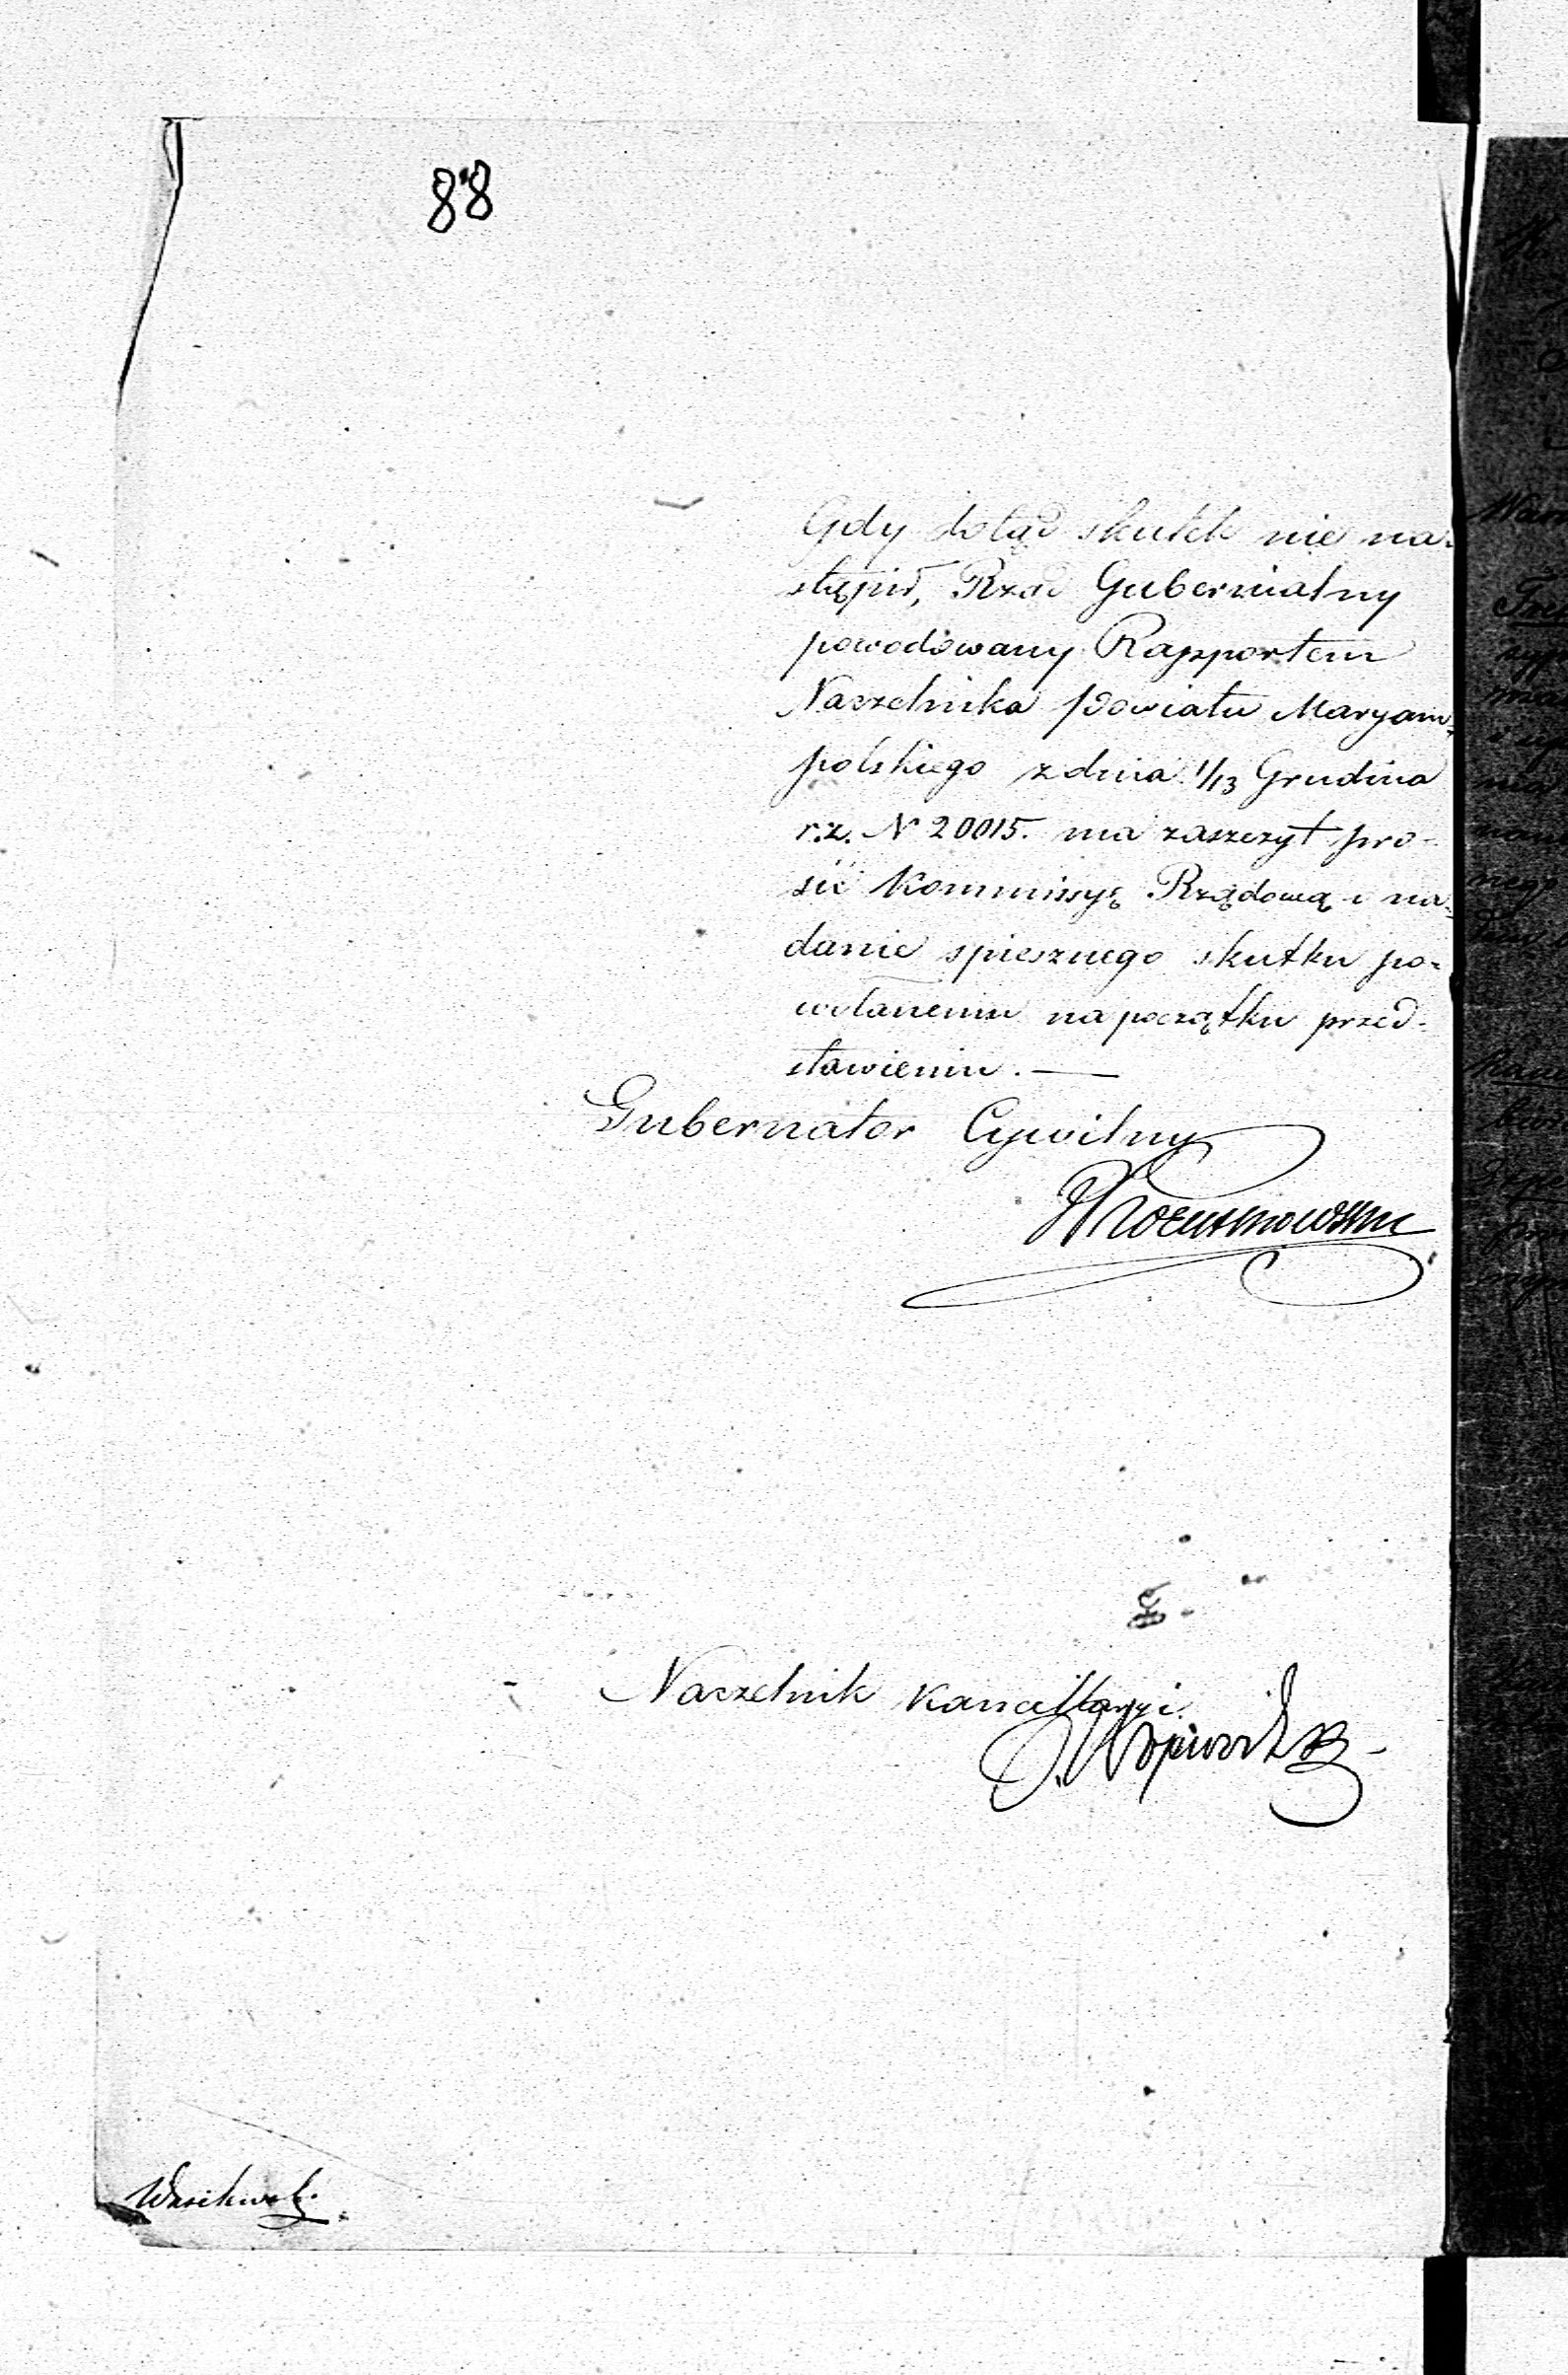 88
Gdy dotąd skutek nie na-
stąpił, Rząd Gubernialny
powodowany Rapportem
Naczelnika Powiatu Maryam-
polskiego z dnia 1/13 Grudnia
r.z. N 20015. ma zaszczyt pro-
sić Kommissyę Rządową o na-
danie spiesznego skutku po-
wołanemu na początku przed-
stawieniu. —
Gubernator Cywilny
Naczelnik Kancellaryi